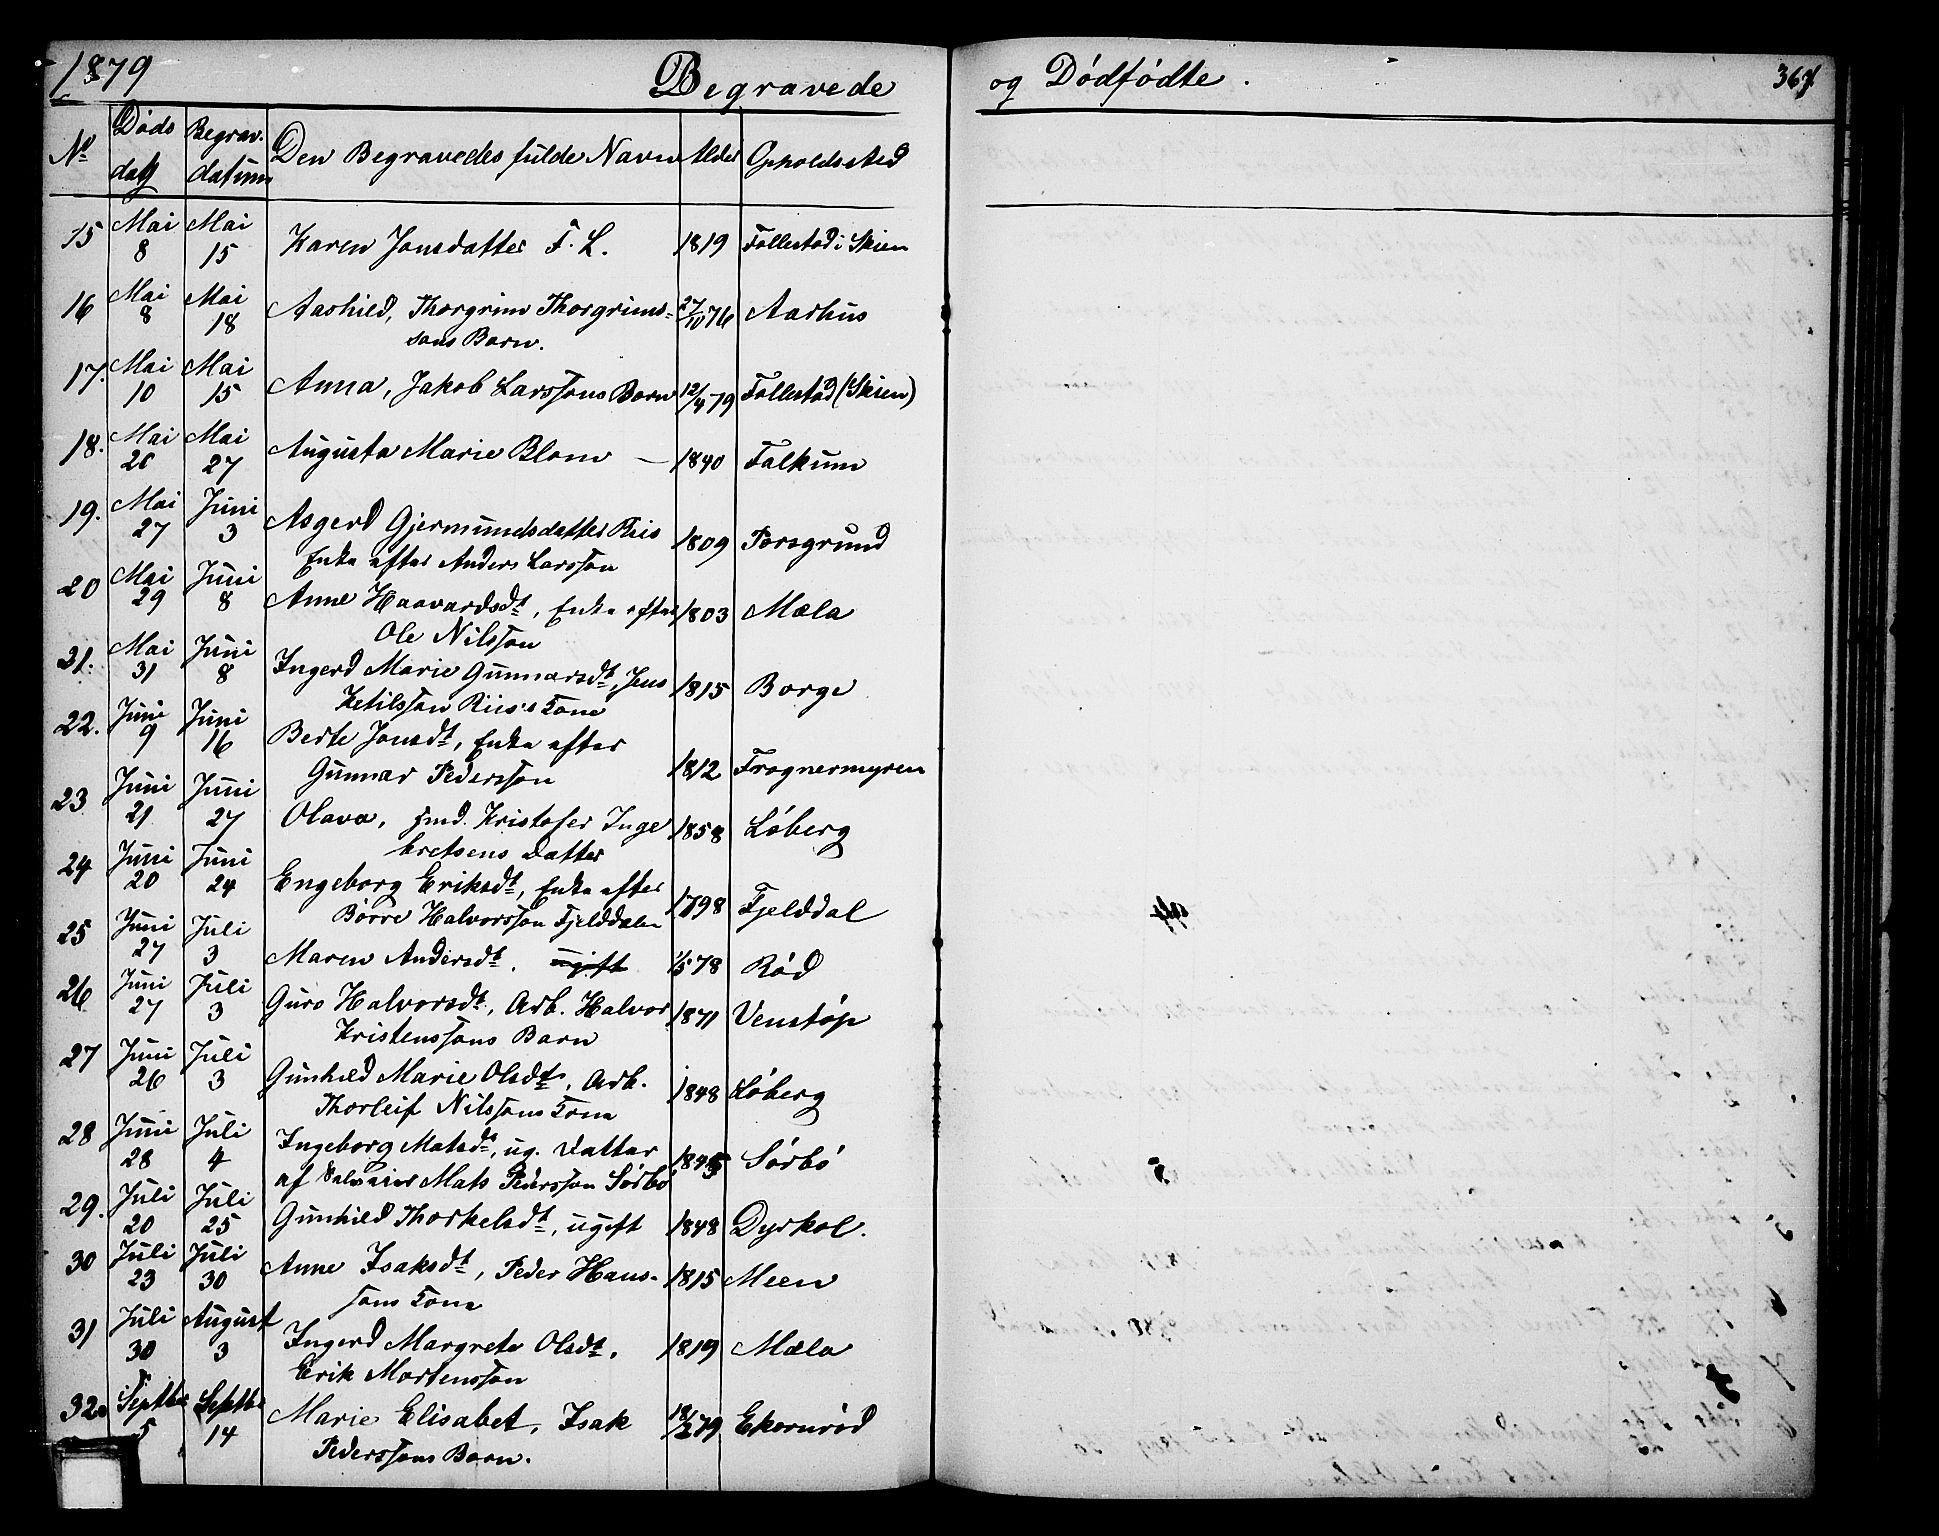 1879 Begravede og Dödfödte. 367
No Döds dag Begrav. datum Den Begravedes fulde Navn Alder Opholdssted
15 Mai 8 Mai 15 Karen Jonsdatter F. L. 1819 Follestad i Skien
16 Mai 8 Mai 18 Aashild, Thorgrim Thorgrims- 27/10 76 Aarhus
sons Barn.
17. Mai 10 Mai 15 Anna, Jakob Larssons Barn 12/4 79 Follestad (Skien)
18. Mai 20 Mai 27 Augusta Marie Blom — 1840 Falkum
19. Mai 27 Juni 3 Asgerd Gjermundsdatter Riis 1809 Porsgrund
Enke efter Anders Larsson
20 Mai 29 Juni 8 Anne Haavardsdt, Enke efter 1803 Mæla
Ole Nilsson
21. Mai 31 Juni 8 Ingerd Marie Gunnarsdt, Jens 1815 Borge
Ketilsson Riis's Kone
22. Juni 9 Juni 16 Berte Jonsdt, Enke efter
Gunnar Pedersson 1812 Frognermyren
23 Juni 21 Juni 27 Olava, Kristofer Inge 1858 Löberg
bretsens Datter
24 Juni 20 Juni 24 Engeborg Eriksdt, Enke efter 1798 Fjelddal
Börre Halvorsson Fjelddalen
25 Juni 27 Juli 3 Maren Andersdt. ugift 1/5 78 Röd
26 Juni 27 Juli 3 Guro Halvorsdt, Arb. Halvor 1871 Venstöp
Kristenssons Barn
27 Juni 26 Juli 3 Gunhild Marie Olsdt, Arb. 1848 Löberg
Thorleif Nilssons Kone
28 Juni 28 Juli 4 Ingeborg Matsdt, ug. Datter 1845 Sörbö
af Mats Pedersson Sörbö
29. Juli 20 Juli 25 Gunhild Thorkelsdt, ugift 1848 Dyrkol.
30 Juli 23 Juli 30 Anne Isaksdt, Peder Hans- 1815 Meen
sons Kone
31 Juli 30 August 3 Ingerd Margrete Olsdt, 1819 Mæla
Erik Mortensson
32. Septbr 5 Septbr 14 Marie Elisabet, Isak 18/2 79 Ekornröd
Pederssons Barn.